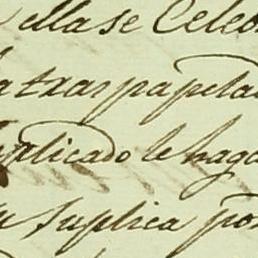 ella se Celeb
atras papela
uplicado le haga
Suplica por